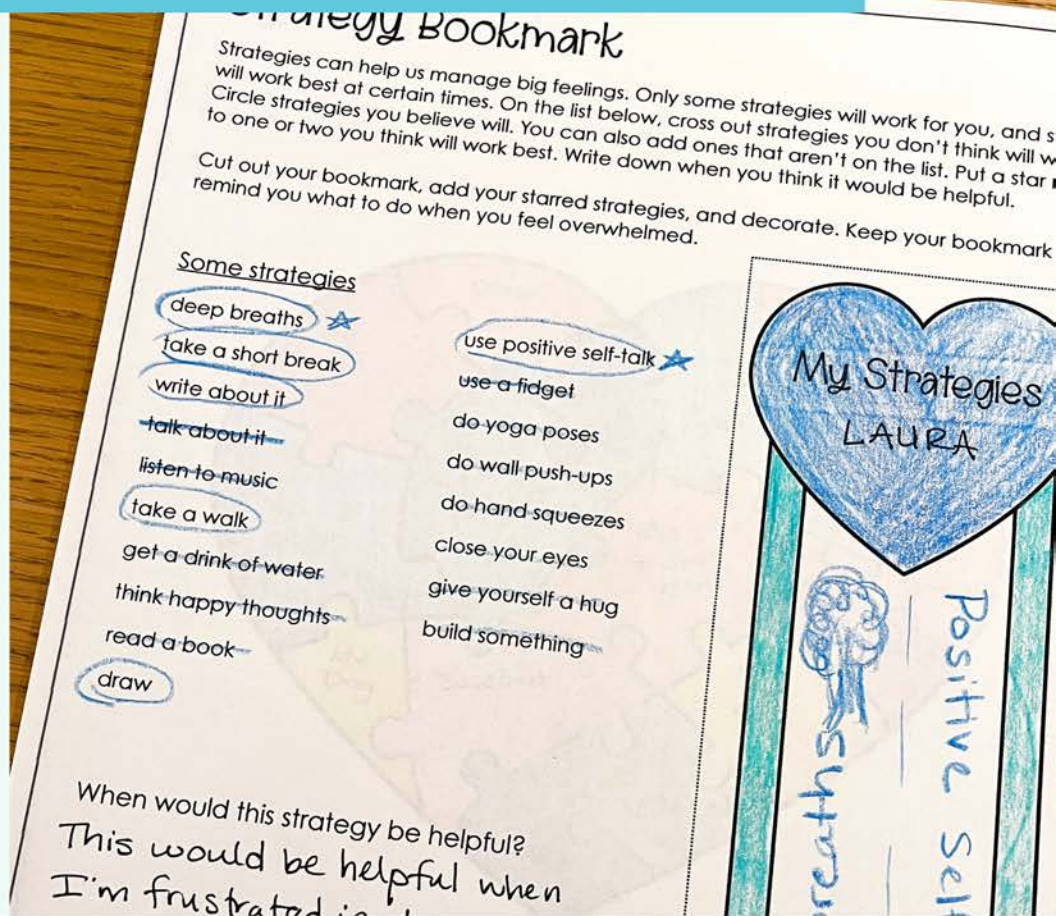 Strategy Bookmark
Strategies can help us manage big feelings. Only some strategies will work for you, and
will work best at certain times. On the list below, cross out strategies you don't think will
Circle strategies you believe will. You can also add ones that aren't on the list. Put a star
to one or two you think will work best. Write down when you think it would be helpful.
Cut out your bookmark, add your starred strategies, and decorate. Keep your bookmark
remind you what to do when you feel overwhelmed.
Some strategies
deep breaths
take a short break
write about it
talk about it
listen to music
take a walk
get a drink of water
think happy thoughts
read a book
draw
use positive self-talk
use a fidget
do yoga poses
do wall push-ups
do hand squeezes
close your eyes
give yourself a hug
build something
When would this strategy be helpful?
This would be helpful when
I'm frustrated
My Strategies
LAURA
Positive Self
reaths